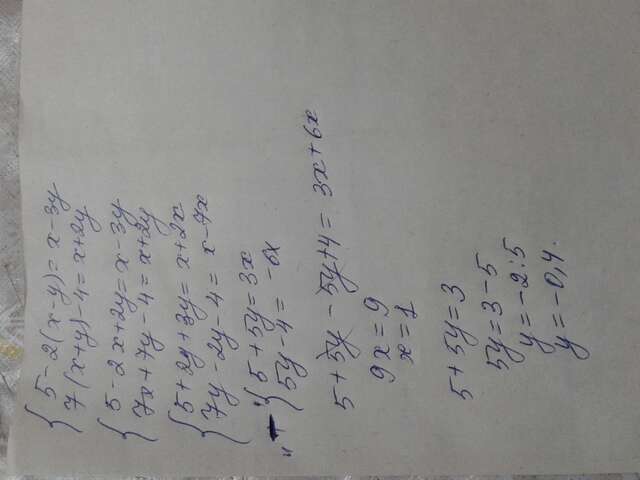 { 5 - 2(x - y) = x - 3y
7(x + y) - 4 = x + 2y
{ 5 - 2x + 2y = x - 3y
7x + 7y - 4 = x + 2y
{ 5 + 2y + 3y = x + 2x
7y - 2y - 4 = x - 7x
"-" { 5 + 5y = 3x
5y - 4 = -6x
5 + 5y - 5y + 4 = 3x + 6x
9x = 9
x = 1
5 + 5y = 3
5y = 3 - 5
y = -2 : 5
y = -0,4.